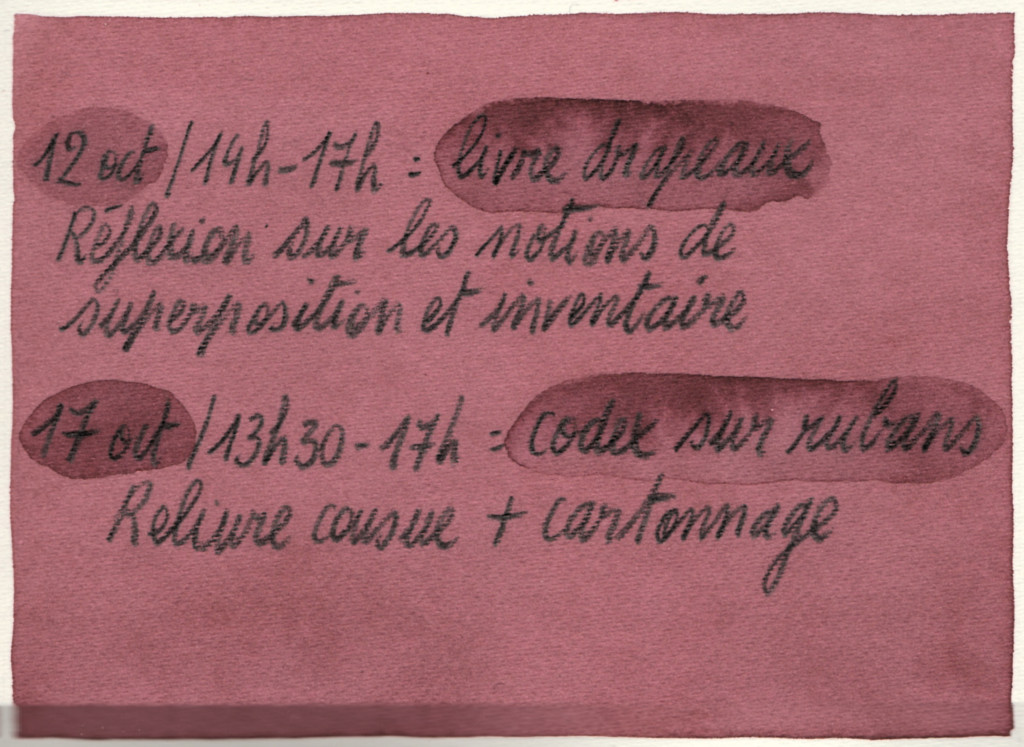 12 oct / 14h-17h = livre drapeaux
Réflexion sur les notions de
superposition et inventaire
17 oct / 13h30 - 17h = codex sur rubans
Reliure cousue + cartonnage